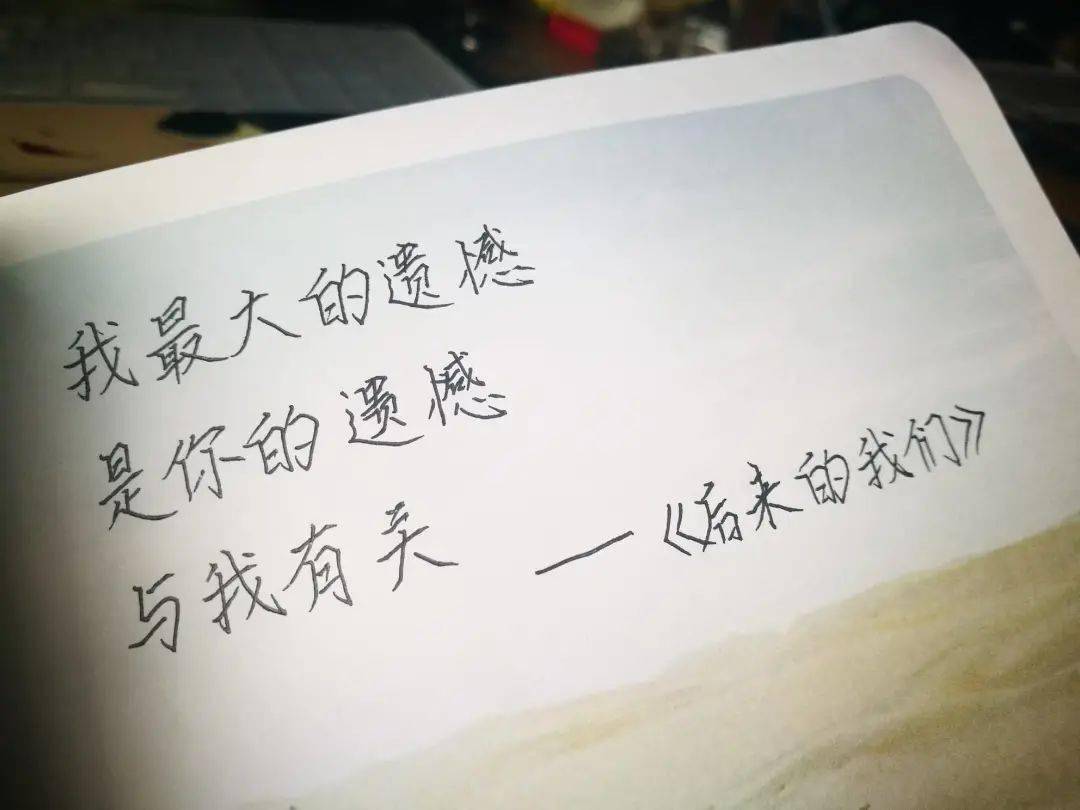 我最大的遗憾
是你的遗憾
与我有关
—《后来的我们》